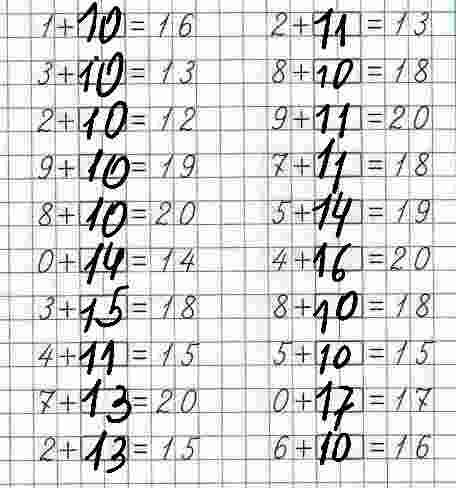 1+10=16 2+11=13
3+10=13 8+10=18
2+10=12 9+11=20
9+10=19 7+11=18
8+10=20 5+14=19
0+14=14 4+16=20
3+15=18 8+10=18
4+11=15 5+10=15
7+13=20 0+17=17
2+13=15 6+10=16